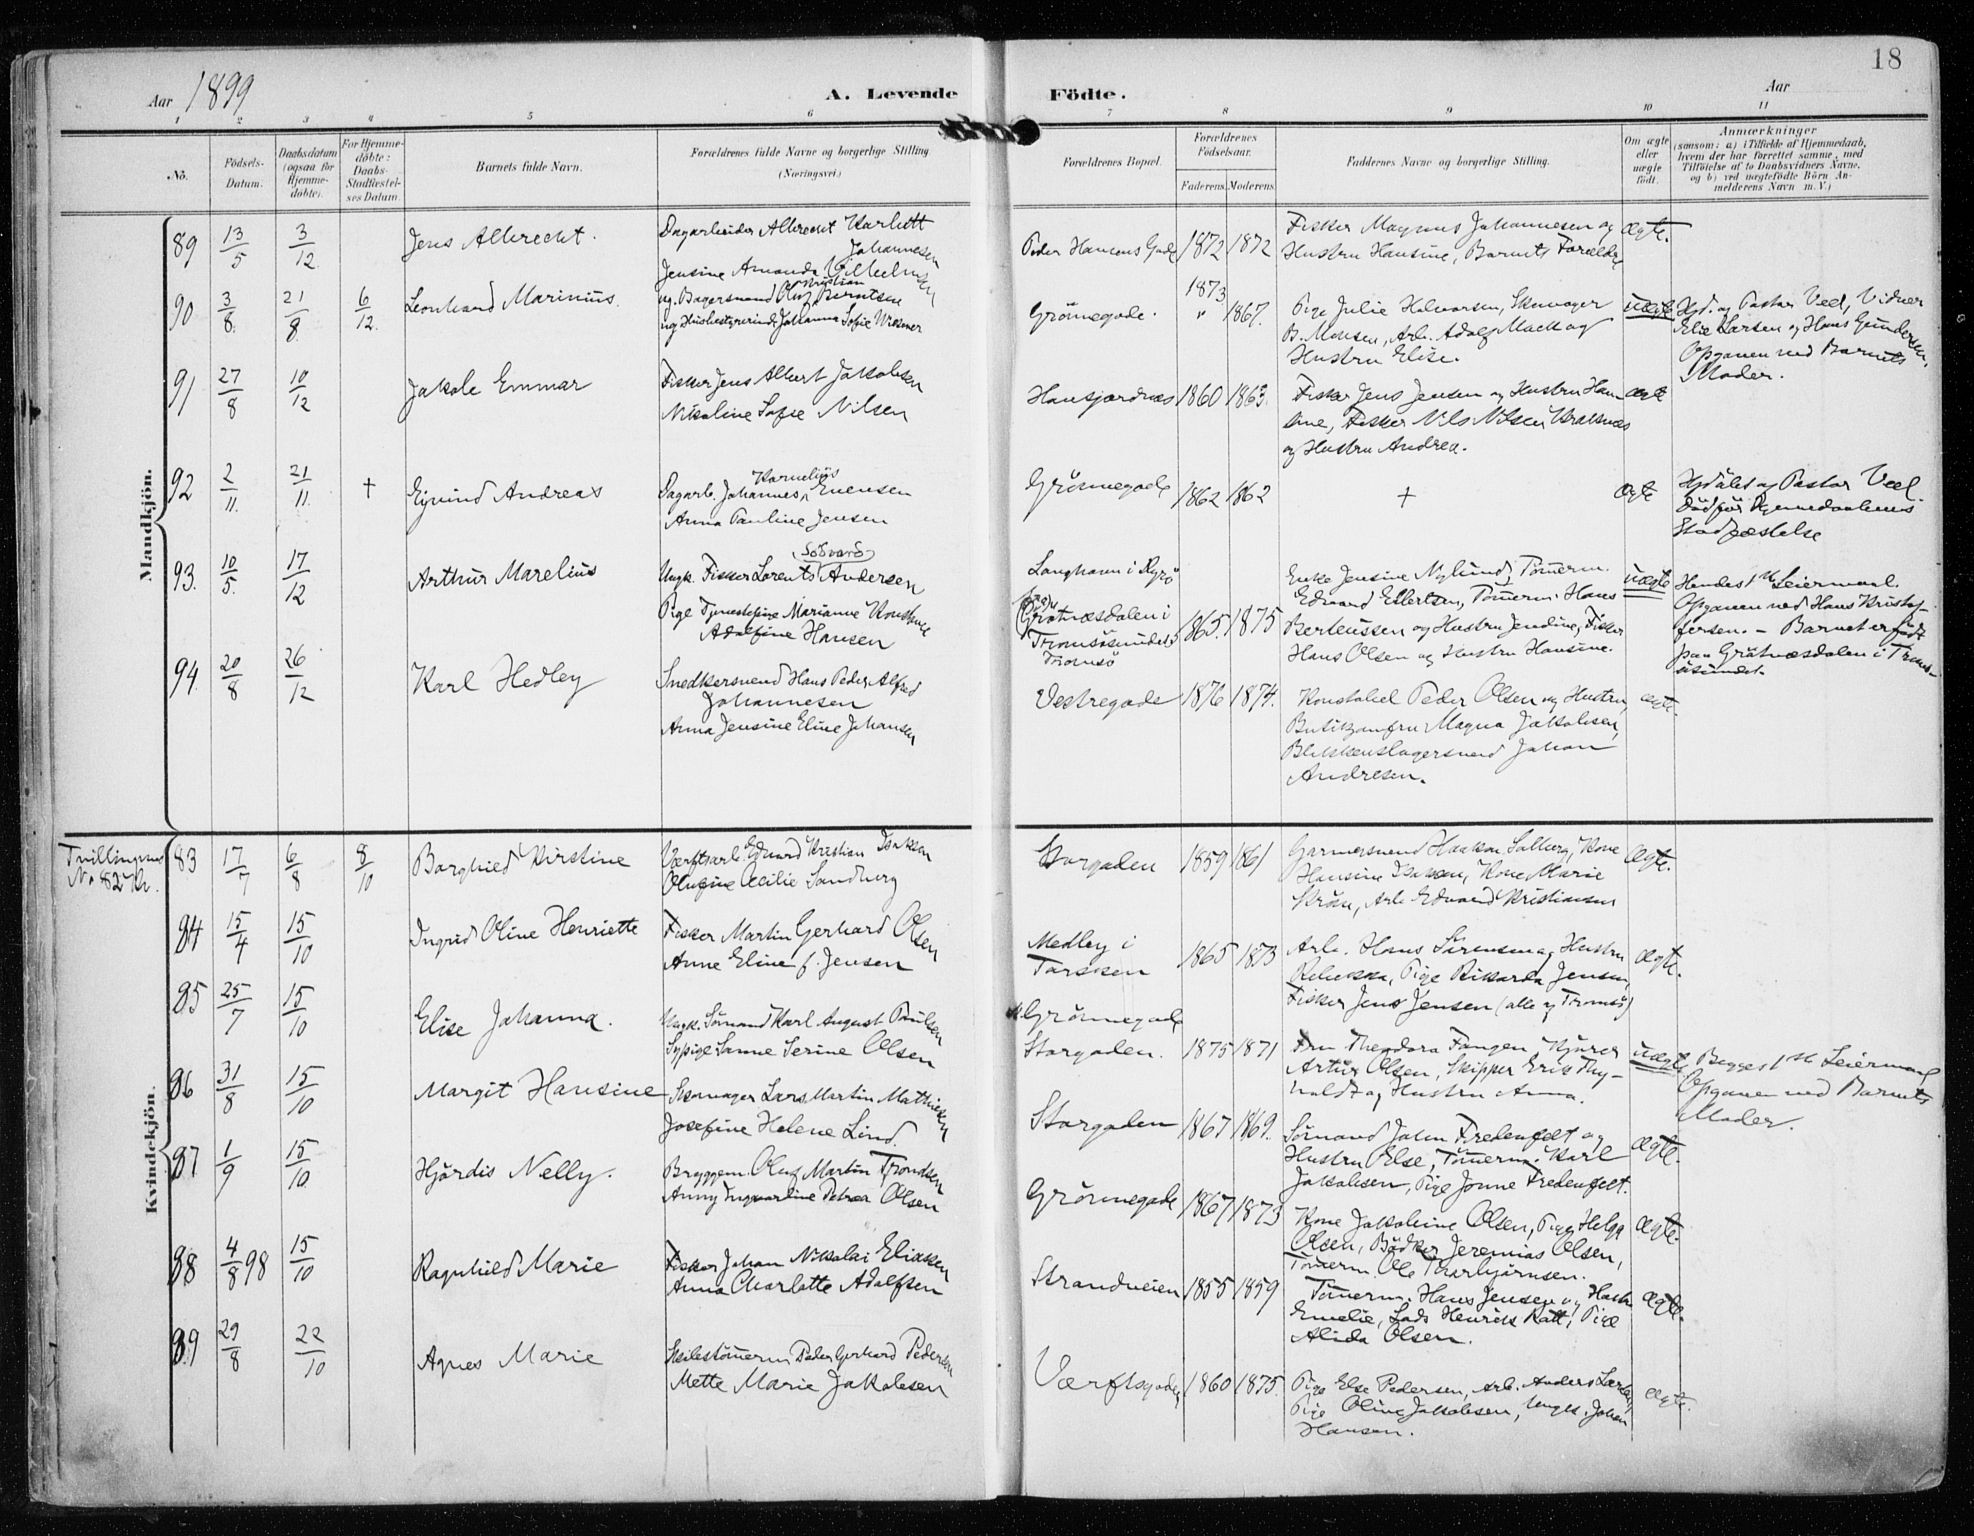 18
Aar 1899 A. Levende Födte. Aar
1 2 3 4 5 6 7 8 9 10 11
No. Födsels-Datum. Daabsdatum (ogsaa for Hjemme-döbte). For Hjemme-döbte: Daabs-Stadfæstel-ses Datum. Barnets fulde Navn. Forældrenes fulde Navne og borgerlige Stilling (Næringsvei.) Forældrenes Bopæl. Forældrenes Födselsaar. Faderens Moderens Faddernes Navne og borgerlige Stilling. Om ægte eller uægte födt. Anmærkninger (saasom: a) i Tilfælde af Hjemmedaab, hvem der har forrettet samme, med Tilföielse af to Daabsvidners Navne, og b) ved uægtefödte Börn An-melderens Navn m. V.)
Mandkjön.
89 13/5 3/12 Jens Albrecht. Dagarbeider Albrecht
Johannesen
Jensine Amanda Vilhelmsen
Peder Hansens Gade 1872 1872 Fisker Magnus Johannesen og
Hustru Hansine, Barnets Forældre
ægte.
90 3/8. 21/8. 6/12. Leonhard Marinius. Kristian
ug. Bagersvend Oluf Berntsen
ug Husbestyrerinde Johanna Sofie
Grönnegade. 1873 " 1867. Pige Julie Halvorsen, Skomager
B. Monsen, Arb. Adolf Mack og
Hustru Elise.
uægte Hjd. og Pastor Veel, Vidner
Elie Larsen og Hans Gundersen.
Opgaven ved Barnets
Moder.
91 27/8 10/12 Jakob Emmar Fisker Jens Albert Jakobsen
Nikoline Sofie Nilsen
Hansjordnæs 1860 1863. Fisker Jens Jensen og Hustru Han-
sine, Fisker Nils Nilsen
og Hustru Andrea.
ægte
92 2/11. 21/11. † Ejvind Andreas Kornelius
Dagarb. Johannes Evensen
Anna Pauline Jensen
Grönnegade 1862 1862 † ægte Hjdöbt og Pastor Veel.
Död för Hjemmedaabens
Stadfæstelse
93. 10/5. 17/12 Arthur Marelius
Ungk. Fisker Lorents Andersen
Pige Marianne
Adolfine Hansen
i
Grötnæsdalen i
Tromsösundet
Tromsö
1865. 1875 Enke Jensine Nylund, Tömerm.
Edvard Ellertsen, Tömerm. Hans
Berteussen og Hustru Jendine, Fisker
Hans Olsen og Hustru Hansine.
uægte Hendes 1ste Leiermaal.
Opgaven ved Hans Kristof-
fersen. - Barnet er födt
paa Grötnæsdalen i Troms-
ösundet.
94. 20/8 26/12 Karl Hedley Snedkersvend Hans Peder Alfred
Johannesen
Anna Jensine Eline Johansen
Vestregade 1876 1874. Konstabel Peder Olsen og Hustru,
Butikjomfru Magna Jakobsen,
Blikkenslagersvend Johan
Andresen.
ægte.
Kvindekjön.
Tvillinger med
No 82 Kv.
83 17/7 6/8 8/10 Borghild Kirstine Værftsarb. Edvard Kristian Isaksen
Olufine Cecilie Sandberg
Storgaden 1859 1861 Garversvend Haakon Solberg, Kone
Hansine Isaksen, Kone Marie
Arb. Edvard Kristiansen
ægte.
84 15/4 15/10 Ingrid Oline Henriette Fisker Martin Gerhard Olsen
Anne Eline f. Jensen
Medby i
Torsken
1865 1873 Arb. Hans Sörensen og Hustru
Rebekka, Pige Rikarda Jensen,
Fisker Jens Jensen (alle af Tromsö)
ægte.
85 25/7 15/10 Elise Johanna. Ungk. Sömand Karl August Paulsen
Sypige Sanne Serine Olsen
Grönnegade
Storgaden. 1875 1871 Fru Theodora Fangen,
Artur Olsen, Skipper Erik Thy-
holdt og Hustru Anna.
uægte Begges 1ste Leiermaal
Opgaven ved Barnets
Moder.
86 31/8 15/10 Margit Hansine Skomager Lars Martin Mathisen
Josefine Helene Lind.
Storgaden 1867 1869. Sömand John Fredenfelt og
Hustru Else, Tömerm. Karl
Jakobsen, Pige Jonne Fredenfelt.
ægte.
87 1/9 15/10. Hjördis Nelly. Bryggem. Oluf Martin Trondsen
Anny Ingvarline Petrea Olsen
Grönnegade 1867 1873 Kone Jakobine Olsen, Pige Helga
Olsen, Bödker Jeremias Olsen,
Tömerm. Ole Thorbjörnsen.
ægte.
88 4/8 98 15/10 Ragnhild Marie Fisker Johan Nikolai Eliassen
Anna Charlotte Adolfsen
Strandveien 1855 1859 Tömerm. Hans Jensen og Hustru
Emelie, Lods Henrik Ratt, Pige
Alida Olsen.
ægte.
89 29/8 22/10 Agnes Marie Skibstömerm Peder Gerhard Pedersen
Mette Marie Jakobsen
Værftsgaden 1860 1875. Pige Else Pedersen, Arb. Anders Larsen,
Pige Oline Jakobsen, Ungk. Johan
Hansen.
ægte.